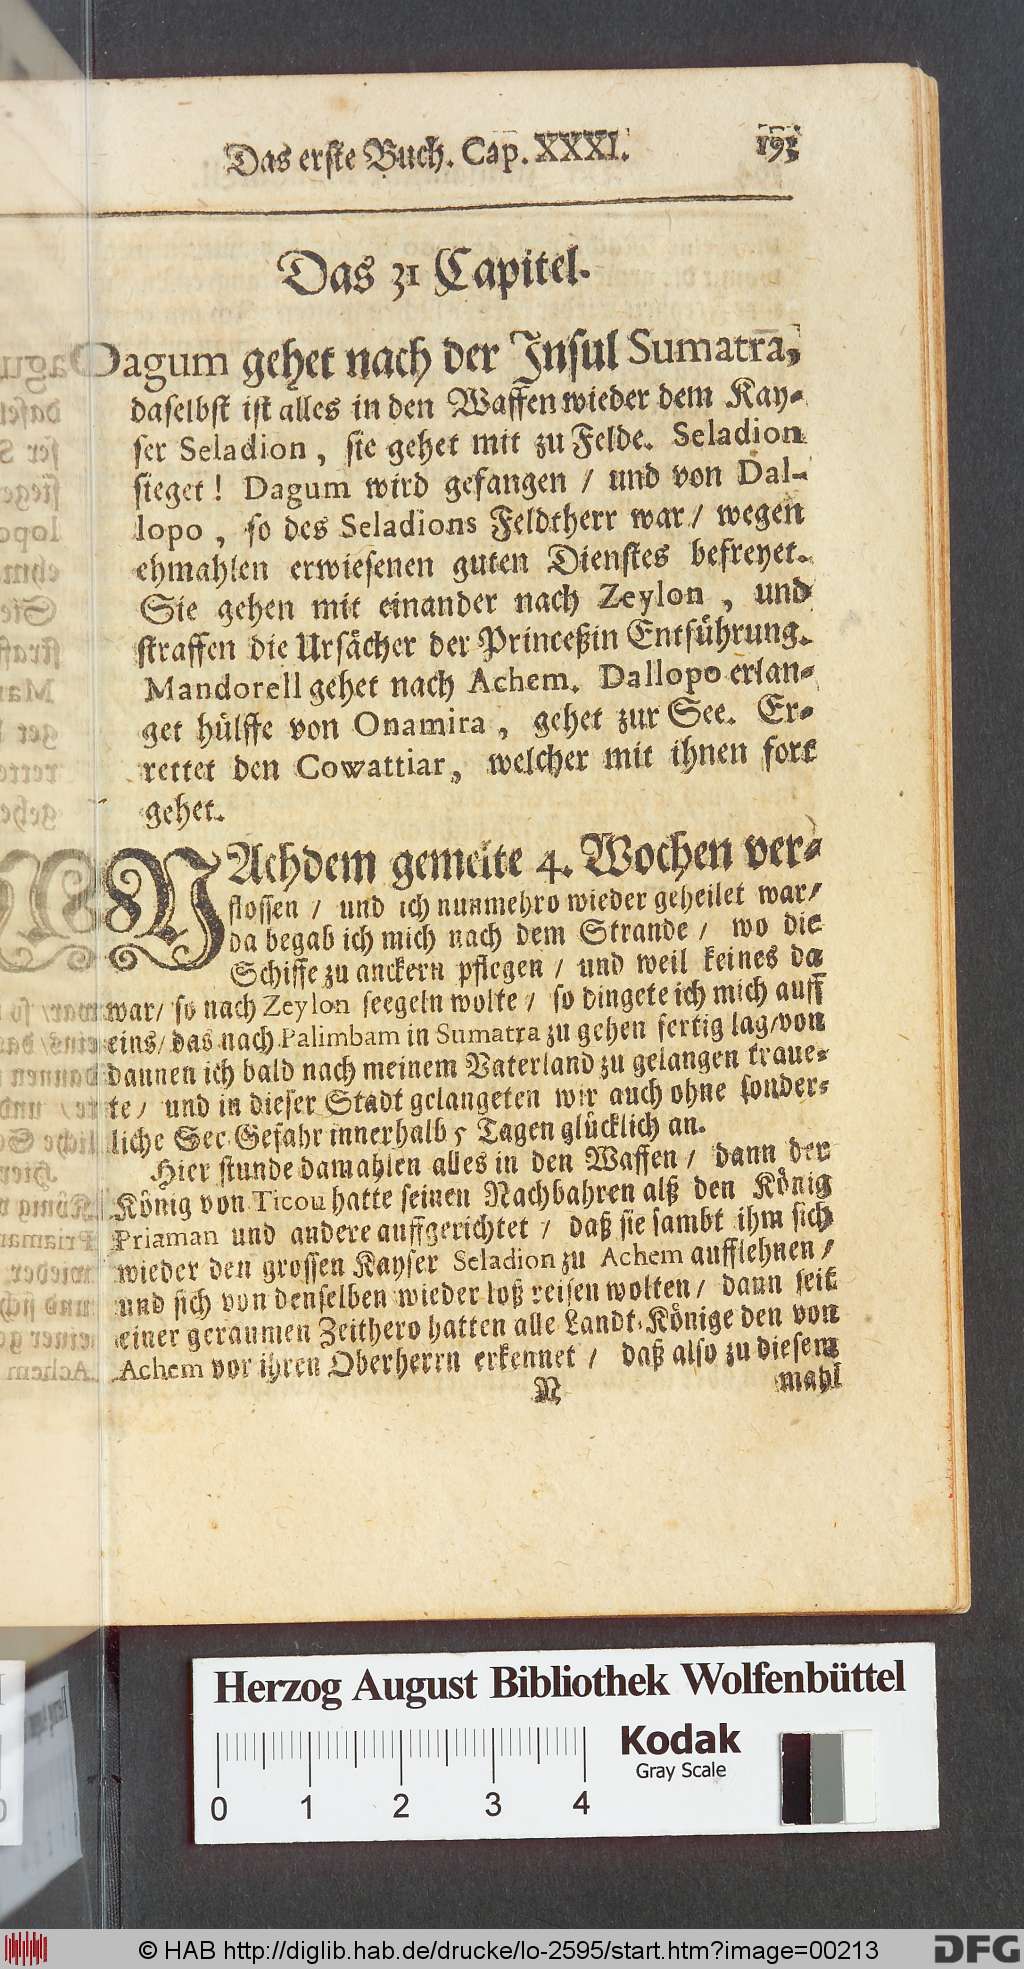 Das erste Buch. Cap. XXXI. 193
Das 31 Capitel.
Dagum gehet nach der Insul Sumatra,
daselbst ist alles in den Waffen wieder dem Kay-
ser Seladion, sie gehet mit zu Felde. Seladion
sieget! Dagum wird gefangen / und von Dal-
lopo, so des Seladions Feldtherr war / wegen
ehmahlen erwiesenen guten Dienstes befreyet.
Sie gehen mit einander nach Zeylon, und
straffen die Ursächer der Princeßin Entführung.
Mandorell gehet nach Achem. Dallopo erlan-
get hülffe von Onamira, gehet zur See. Er-
rettet den Cowattiar, welcher mit ihnen fort
gehet.
NAchdem gemelte 4. Wochen ver-
flossen / und ich nunmehro wieder geheilet war/
da begab ich mich nach dem Strande / wo die
Schiffe zu anckern pflegen / und weil keines da
war/ so nach Zeylon seegeln wolte / so dingete ich mich auff
eins/ das nach Palimbam in Sumatra zu gehen fertig lag/von
dannen ich bald nach meinem Vaterland zu gelangen traue-
te / und in dieser Stadt gelangeten wir auch ohne sonder-
liche See-Gefahr innerhalb 5 Tagen glücklich an.
Hier stunde damahlen alles in den Waffen / dann der
König von Ticou hatte seinen Nachbahren alß den König
Priaman und andere auffgerichtet / daß sie sambt ihm sich
wieder den grossen Kayser Seladion zu Achem aufflehnen /
und sich von denselben wieder loß reisen wolten / dann seit
einer geraumen Zeithero hatten alle Landt-Könige den von
Achem vor ihren Oberherrn erkennet / daß also zu diesem
N mahl
Herzog August Bibliothek Wolfenbüttel
Kodak
Gray Scale
0 1 2 3 4
© HAB http://diglib.hab.de/drucke/lo-2595/start.htm?image=00213
DFG